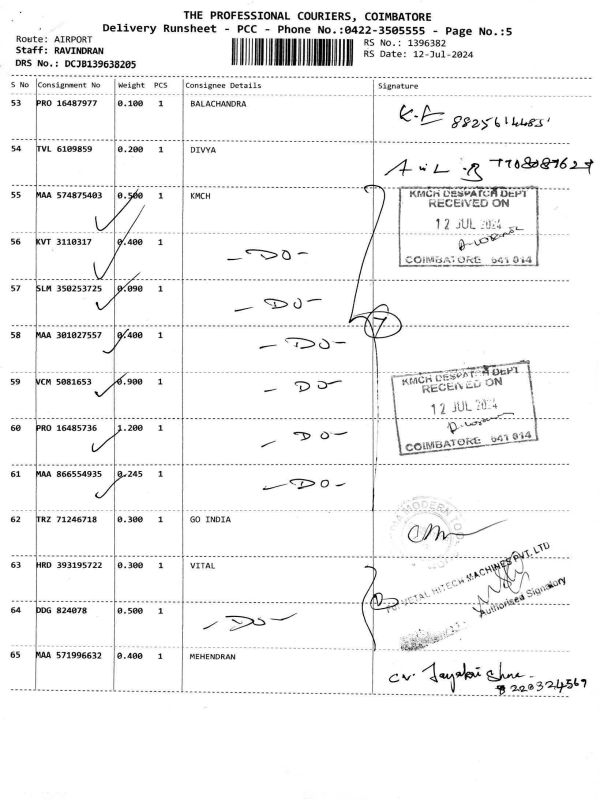 THE PROFESSIONAL COURIERS, COIMBATORE
Delivery Runsheet - PCC - Phone No.:0422-3505555 - Page No.:5
Route: AIRPORT
Staff: RAVINDRAN
DRS No.: DCJB139638205
RS No.: 1396382
RS Date: 12-Jul-2024
S No Consignment No Weight PCS Consignee Details Signature
53 PRO 16487977 0.100 1 BALACHANDRA
54 TVL 6109859 0.200 1 DIVYA
55 MAA 574875403 0.500 1 KMCH
KMCH DESPATCH DEPT
RECEIVED ON
12 JUL 2024
COIMBATORE 641 014
56 KVT 3110317 0.400 1 -DO-
57 SLM 350253725 0.090 1 -DO-
7
58 MAA 301027557 0.400 1 -DO-
59 VCM 5081653 0.900 1 -DO-
KMCH DESPATCH DEPT
RECEIVED ON
12 JUL 2024
COIMBATORE 641 014
60 PRO 16485736 1.200 1 -DO-
61 MAA 866554935 0.245 1 -DO-
62 TRZ 71246718 0.300 1 GO INDIA
MODERN
63 HRD 393195722 0.300 1 VITAL
HITECH MACHINES PVT. LTD
Authorised Signatory
64 DDG 824078 0.500 1 -DO-
65 MAA 571996632 0.400 1 MEHENDRAN